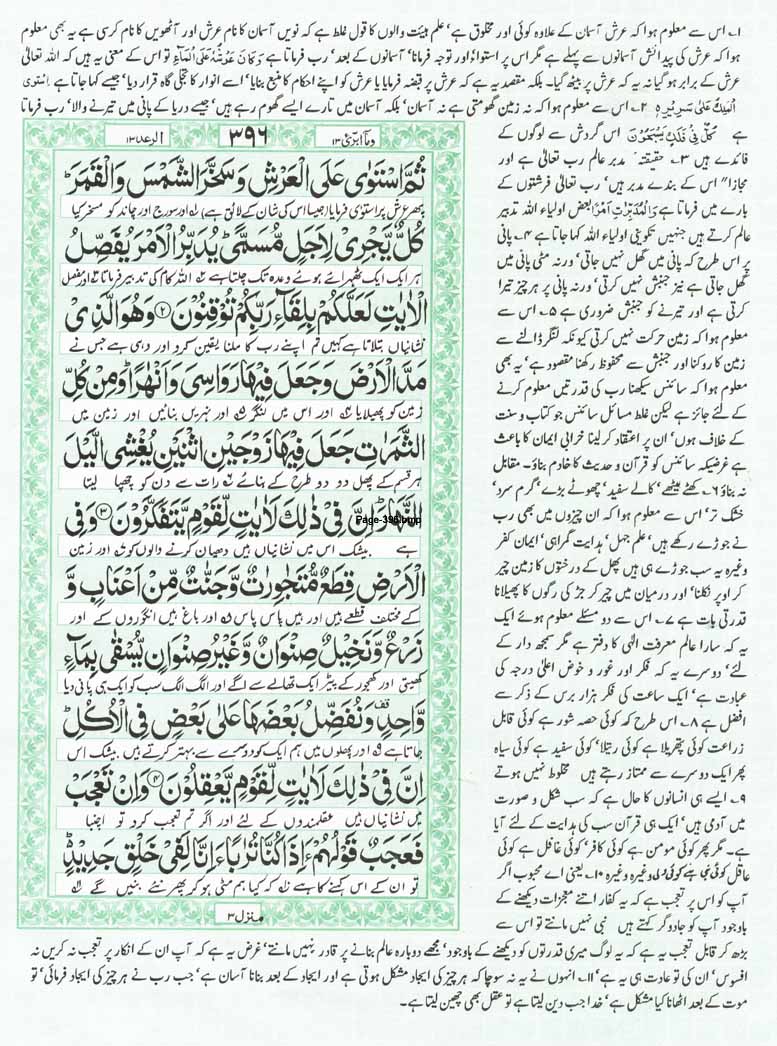 ۱۔ اس سے معلوم ہوا کہ عرش آسمان کے علاوہ کوئی اور مخلوق ہے‘ علم ہیئت والوں کا قول غلط ہے کہ نویں آسمان کا نام عرش اور آٹھویں کا نام کرسی ہے یہ بھی معلوم
ہوا کہ عرش کی پیدائش آسمانوں سے پہلے ہے مگر اس پر استواء اور توجہ فرمانا‘ آسمانوں کے بعد‘ رب فرماتا ہے وَكَانَ عَرْشُهٗ عَلَى الْمَآءِ تو اس کے معنی یہ ہیں کہ اللہ تعالیٰ
عرش کے برابر ہو گیا نہ یہ کہ عرش پر بیٹھ گیا۔ بلکہ مقصد یہ ہے کہ عرش پر قبضہ فرمایا یا عرش کو اپنے احکام کا منبع بنایا‘ اسے انوار کا تجلی گاہ قرار دیا‘ جیسے کہا جاتا ہے اِسْتَوٰى
الْمَلِكُ عَلٰى سَرِيْرِهٖ ۲۔ اس سے معلوم ہوا کہ نہ زمین گھومتی ہے نہ آسمان‘ بلکہ آسمان میں تارے ایسے گھوم رہے ہیں‘ جیسے دریا کے پانی میں تیرنے والا‘ رب فرماتا
ہے كُلٌّ فِيْ فَلَكٍ يَّسْبَحُوْنَ اس گردش سے لوگوں کے
فائدے ہیں ۳۔ حقیقتہ‘ مدبر عالم رب تعالیٰ ہے اور
مجازا" اس کے بندے مدبر ہیں‘ رب تعالیٰ فرشتوں کے
بارے میں فرماتا ہے وَالْمُدَبِّرٰتِ اَمْرًا بعض اولیاء اللہ تدبیر
عالم کرتے ہیں جنہیں تکوینی اولیاء اللہ کہا جاتا ہے ۴۔ پانی
پر اس طرح کہ پانی میں گھل نہیں جاتی‘ ورنہ مٹی پانی میں
گھل جاتی ہے نیز جنبش نہیں کرتی‘ ورنہ پانی پر ہر چیز تیرا
کرتی ہے اور تیرنے کو جنبش ضروری ہے ۵۔ اس سے
معلوم ہوا کہ زمین حرکت نہیں کرتی کیونکہ لنگر ڈالنے سے
زمین کا روکنا اور جنبش سے محفوظ رکھنا مقصود ہے‘ یہ بھی
معلوم ہوا کہ سائنس سیکھنا رب کی قدرتیں معلوم کرنے
کے لئے جائز ہے لیکن غلط مسائل سائنس جو کتاب و سنت
کے خلاف ہوں‘ ان پر اعتقاد کر لینا خرابی ایمان کا باعث
ہے غرضیکہ سائنس کو قرآن و حدیث کا خادم بناؤ۔ مقابل
نہ بناؤ ۶۔ کھٹے میٹھے‘ کالے سفید‘ چھوٹے بڑے‘ گرم سرد‘
خشک تر‘ اس سے معلوم ہوا کہ ان چیزوں میں بھی رب
نے جوڑے رکھے ہیں‘ علم جہل‘ ہدایت گمراہی‘ ایمان کفر
وغیرہ یہ سب جوڑے ہی ہیں پھل کے درختوں کا زمین چیر
کر اوپر نکلنا‘ اور درمیان میں چیر کر جڑ کی رگوں کا پھیلانا
قدرتی بات ہے ۷۔ اس سے دو مسئلے معلوم ہوئے ایک
یہ کہ سارا عالم معرفت الٰہی کا دفتر ہے مگر سمجھ دار کے
لئے‘ دوسرے یہ کہ فکر اور غور و خوض اعلیٰ درجہ کی
عبادت ہے‘ ایک ساعت کی فکر ہزار برس کے ذکر سے
افضل ہے ۸۔ اس طرح کہ کوئی حصہ شور ہے کوئی قابل
زراعت کوئی پتھریلا ہے کوئی رتیلا‘ کوئی سفید ہے کوئی سیاہ
پھر ایک دوسرے سے ممتاز رہتے ہیں مخلوط نہیں ہوتے
۹۔ ایسے ہی انسانوں کا حال ہے کہ سب شکل و صورت
میں آدمی ہیں‘ ایک ہی قرآن سب کی ہدایت کے لئے آیا
ہے۔ مگر پھر کوئی مومن ہے کوئی کافر‘ کوئی غافل ہے کوئی
عاقل کوئی نبی ہے کوئی وغیرہ وغیرہ ۱۰۔ یعنی اے محبوب اگر
آپ کو اس پر تعجب ہے کہ یہ کفار اتنے معجزات دیکھنے کے
باوجود آپ کو جادوگر کہتے ہیں نبی نہیں مانتے تو اس سے
بڑھ کر قابل تعجب یہ ہے کہ یہ لوگ میری قدرتوں کو دیکھنے کے باوجود‘ مجھے دوبارہ عالم بنانے پر قادر نہیں مانتے‘ غرض یہ ہے کہ آپ ان کے انکار پر تعجب نہ کریں نہ
افسوس‘ ان کی تو عادت ہی یہ ہے ۱۱۔ انہوں نے یہ نہ سوچا کہ ہر چیز کی ایجاد مشکل ہوتی ہے اور ایجاد کے بعد بنانا آسان ہے‘ جب رب نے ہر چیز کی ایجاد فرمائی‘ تو
موت کے بعد اٹھانا کیا مشکل ہے‘ خدا جب دین لیتا ہے تو عقل بھی چھین لیتا ہے۔
وما ابرئ ۱۳
۳۹۶
الرعد ۱۳
ثُمَّ اسْتَوٰى عَلَى الْعَرْشِ وَسَخَّرَ الشَّمْسَ وَالْقَمَرَ
پھر عرش پر استوٰی فرمایا (جیسا اس کی شان کے لائق ہے) اور سورج اور چاند کو مسخر کیا
كُلٌّ يَّجْرِيْ لِاَجَلٍ مُّسَمًّى يُدَبِّرُ الْاَمْرَ يُفَصِّلُ
ہر ایک ایک ٹھہرائے ہوئے وعدہ تک چلتا ہے اللہ کام کی تدبیر فرماتا اور مفصل
الْاٰيٰتِ لَعَلَّكُمْ بِلِقَآءِ رَبِّكُمْ تُوْقِنُوْنَ ۲ وَهُوَ الَّذِيْ
نشانیاں بتلاتا ہے کہیں تم اپنے رب کا ملنا یقین کرو اور وہی ہے جس نے
مَدَّ الْاَرْضَ وَجَعَلَ فِيْهَا رَوَاسِيَ وَاَنْهٰرًا وَمِنْ كُلِّ
زمین کو پھیلایا اور اس میں لنگر اور نہریں بنائیں اور زمین میں
الثَّمَرٰتِ جَعَلَ فِيْهَا زَوْجَيْنِ اثْنَيْنِ يُغْشِي الَّيْلَ
ہر قسم کے پھل دو دو طرح کے بنائے رات سے دن کو چھپا لیتا
النَّهَارَ اِنَّ فِيْ ذٰلِكَ لَاٰيٰتٍ لِّقَوْمٍ يَّتَفَكَّرُوْنَ ۳ وَفِي
Page-396.bmp
ہے بیشک اس میں نشانیاں ہیں دھیان کرنے والوں کو اور زمین
الْاَرْضِ قِطَعٌ مُّتَجٰوِرٰتٌ وَّجَنّٰتٌ مِّنْ اَعْنَابٍ وَّ
کے مختلف قطعے ہیں اور ہیں پاس پاس اور باغ ہیں انگوروں کے اور
زَرْعٌ وَّنَخِيْلٌ صِنْوَانٌ وَّغَيْرُ صِنْوَانٍ يُّسْقٰى بِمَآءٍ
کھیتی اور کھجور کے پیڑ ایک تھالے سے اگے اور الگ الگ سب کو ایک ہی پانی دیا
وَّاحِدٍ وَنُفَضِّلُ بَعْضَهَا عَلٰى بَعْضٍ فِي الْاُكُلِ
جاتا ہے اور پھلوں میں ہم ایک کو دوسرے سے بہتر کرتے ہیں بیشک اس
اِنَّ فِيْ ذٰلِكَ لَاٰيٰتٍ لِّقَوْمٍ يَّعْقِلُوْنَ ۴ وَاِنْ تَعْجَبْ
میں نشانیاں ہیں عقلمندوں کے لئے اور اگر تم تعجب کرو تو اچنبا
فَعَجَبٌ قَوْلُهُمْ ءَاِذَا كُنَّا تُرٰبًا ءَاِنَّا لَفِيْ خَلْقٍ جَدِيْدٍ
تو ان کے اس کہنے کا ہے کہ کیا ہم مٹی ہو کر پھر نئے بنیں گے
منزل ۳